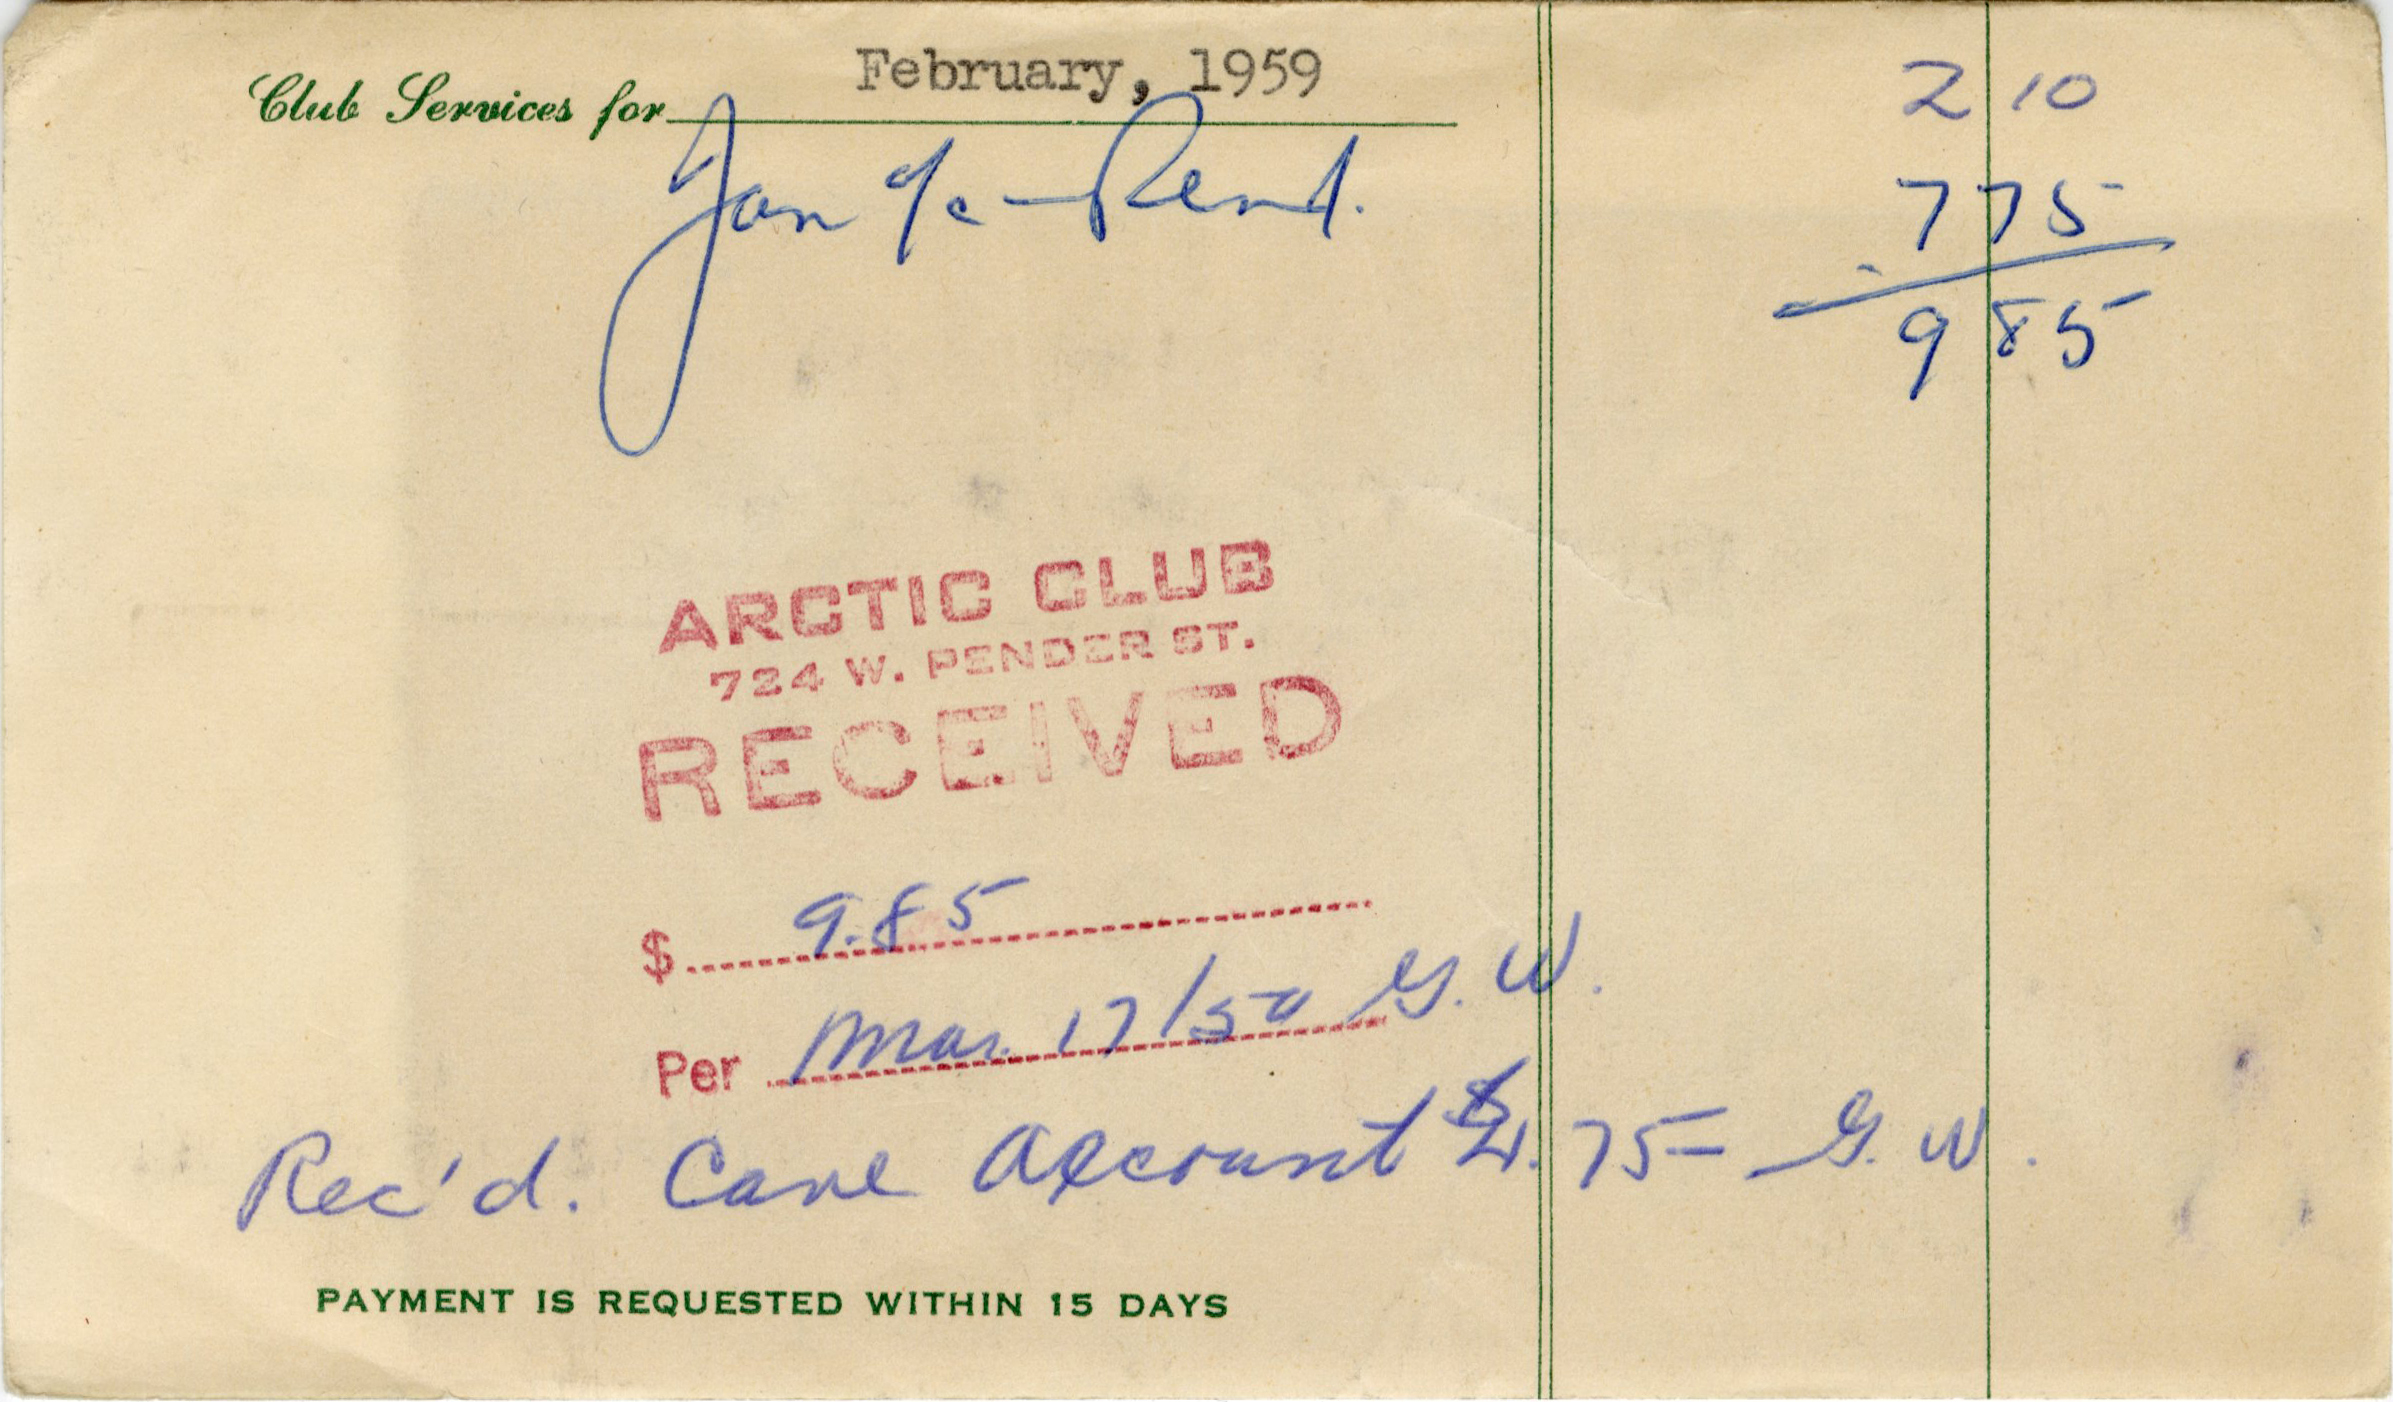 Club Services for February, 1959
2 10
Jan a/c - Rend.
7 75
9 85
ARCTIC CLUB
724 W. PENDER ST.
RECEIVED
$ 9.85
Per Mar. 17/59 G. W.
Rec'd. Account 75 G. W.
PAYMENT IS REQUESTED WITHIN 15 DAYS